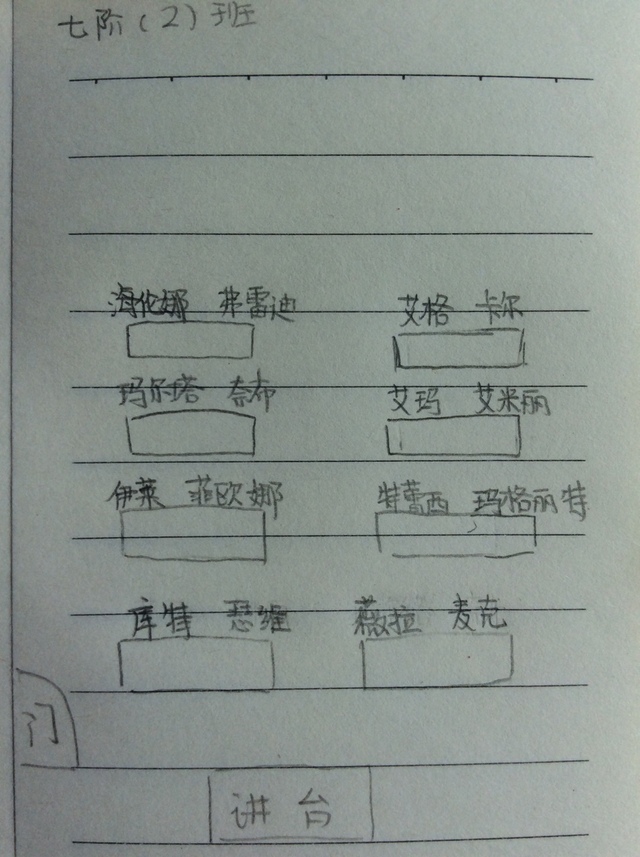 七阶(2)班
海伦娜 弗雷迪 艾格 卡尔
玛尔塔 奈布 艾玛 艾米丽
伊莱 菲欧娜 特蕾西 玛格丽特
库特 瑟维 薇拉 麦克
门
讲台